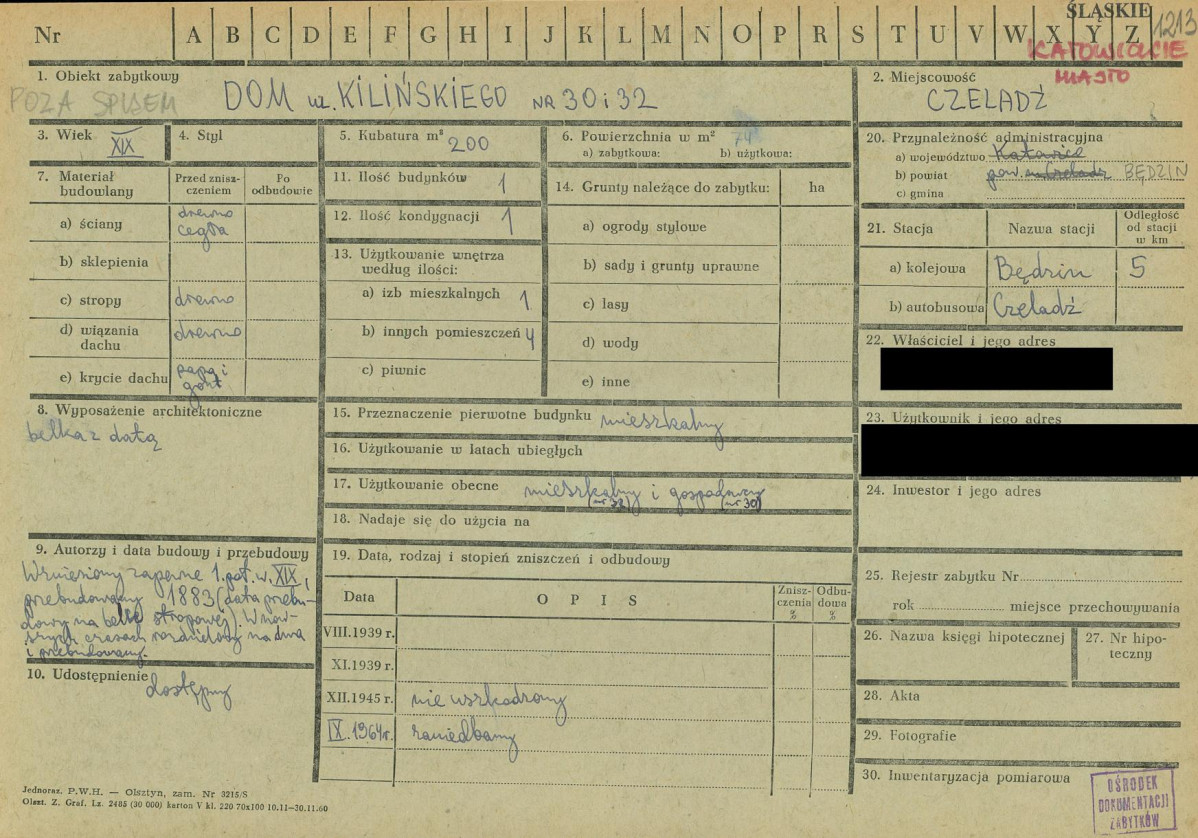 Nr A B C D E F G H I J K L M N O P R S T U V W X Y Z
ŚLĄSKIE
1213
KATOWICKIE
MIASTO
1. Obiekt zabytkowy
POZA SPISEM
DOM UL. KILIŃSKIEGO NR 30 i 32
2. Miejscowość
CZELADŹ
3. Wiek XIX
4. Styl
5. Kubatura m³ 200
6. Powierzchnia w m² 74
a) zabytkowa: b) użytkowa:
7. Materiał budowlany
Przed zniszczeniem
Po odbudowie
a) ściany drewno cegła
b) sklepienia
c) stropy drewno
d) wiązania dachu drewno
e) krycie dachu papa i gont
8. Wyposażenie architektoniczne
belka z datą
9. Autorzy i data budowy i przebudowy
Wzniesiony zapewne 1. poł. w. XIX,
przebudowany 1883 (data przebu-
dowy na belce stropowej). W now-
szych czasach rozdzielony na dwa
i przebudowany.
10. Udostępnienie dostępny
11. Ilość budynków 1
12. Ilość kondygnacji 1
13. Użytkowanie wnętrza
według ilości:
a) izb mieszkalnych 1
b) innych pomieszczeń 4
c) piwnic
14. Grunty należące do zabytku: ha
a) ogrody stylowe
b) sady i grunty uprawne
c) lasy
d) wody
e) inne
15. Przeznaczenie pierwotne budynku mieszkalny
16. Użytkowanie w latach ubiegłych
17. Użytkowanie obecne mieszkalny i gospodarczy
(nr 32) (nr 30)
18. Nadaje się do użycia na
19. Data, rodzaj i stopień zniszczeń i odbudowy
Data OPIS Zniszczenia % Odbudowa %
VIII.1939 r.
XI.1939 r.
XII.1945 r. nie uszkodzony
IX.1964r. zaniedbany
20. Przynależność administracyjna
a) województwo Katowice
b) powiat pow. m. Czeladź BĘDZIN
c) gmina
21. Stacja
Nazwa stacji
Odległość od stacji w km
a) kolejowa Będzin 5
b) autobusowa Czeladź
22. Właściciel i jego adres
23. Użytkownik i jego adres
24. Inwestor i jego adres
25. Rejestr zabytku Nr
rok miejsce przechowywania
26. Nazwa księgi hipotecznej
27. Nr hipo-
teczny
28. Akta
29. Fotografie
30. Inwentaryzacja pomiarowa
OŚRODEK
DOKUMENTACJI
ZABYTKÓW
Jednoraz. P.W.H. — Olsztyn, zam. Nr 3215/S
Olszt. Z. Graf. Lz. 2485 (30 000) karton V kl. 220 70x100 10.11—30.11.60